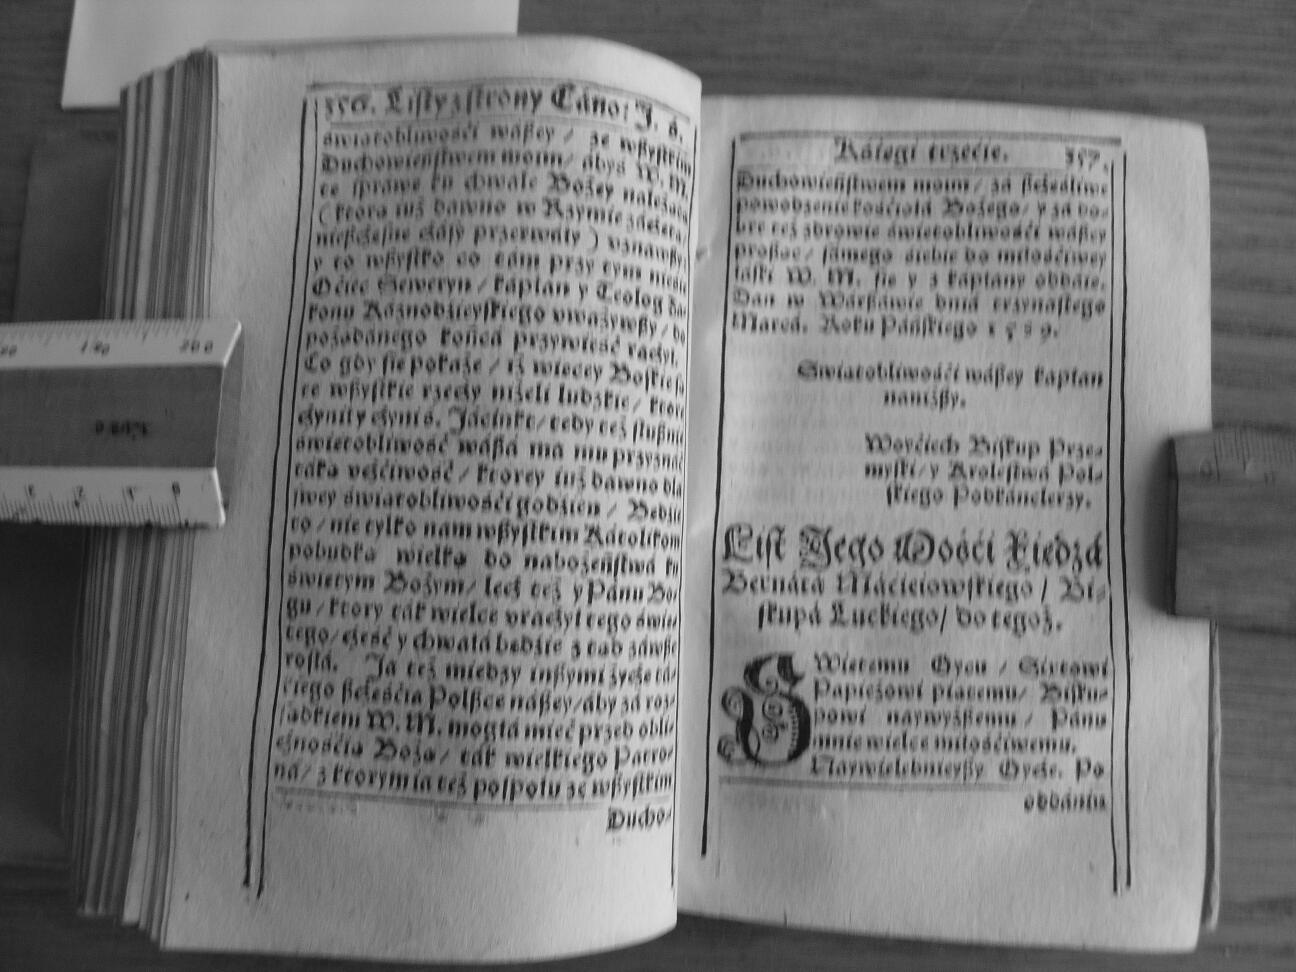 356. Listy z strony Cano: J. S.
swiatobliwośći wáßey / ze wßystkim
Duchowieństwem moim / ábyś W. M.
te sprawe ku chwale Bożey należącą
(ktora iuż dawno w Rzymie záczęta /
nießczesne czásy przerwáły) wznawßy,
y to wßystko co tám przy tym niesie
Oćiec Seweryn / kápłan y Teolog Za-
konu Káznodzieyskiego vważywßy / do
pożądánego końcá przywieść raczył.
Co gdy sie pokaże / iż wiecey Boskie są
te wßystkie rzeczy niżeli ludzkie / ktore
czynił y czyni S. Jácinkt / tedy też słußnie
świetobliwość wáßá ma mu przyznáć
táką vcżćiwość / ktorey iuż dawno dla
swey świątobliwośći godźien / Bedźie
to / nie tylko nam wßystkim Kátolikom
pobudką wielką do nabożeństwá ku
świetym Bożym / lecż też y Pánu Bo-
gu / ktory ták wielce vraczył tego świe-
tego / cżeść y chwałá bedźie z tąd záwße
rosłá. Ja też miedzy inßymi życzę tá-
kiego ßcżeśćia Polßcże náßey / áby zá roz-
sądkiem W. M. mogłá mieć przed obli-
cżnośćią Bożą / ták wielkiego Pátro-
ná / z ktorym ia też pospołu ze wßystkim
Ducho-
Kśięgi trzećie. 357.
Duchowieństwem moim / zá ßcżeśliwe
powodzenie kośćiołá Bożego / y zá do-
bre też zdrowie świetobliwośći wáßey
prosząc / sámego śiebie do miłośćiwey
łáski W. M. sie y z kápłány oddáie.
Dan w Wárßáwie dniá trzynastego
Marcá. Roku Páńskiego 1589.
Swiatobliwośći wáßey kápłan
naniżßy.
Woyćiech Biskup Prze-
myski / y Krolestwá Pol-
skiego Podkánclerzy.
List Jego Mośći Xiedzá
Bernátá Máćieiowskiego / Bi-
skupá Łuckiego / do tegoż.
SWietemu Oycu / Sixtowi
Papieżowi piątemu / Bisku-
powi naywyżßemu / Pánu
mnie wielce miłośćiwemu.
Naywielebnieyßy Oycże. Po
oddániu